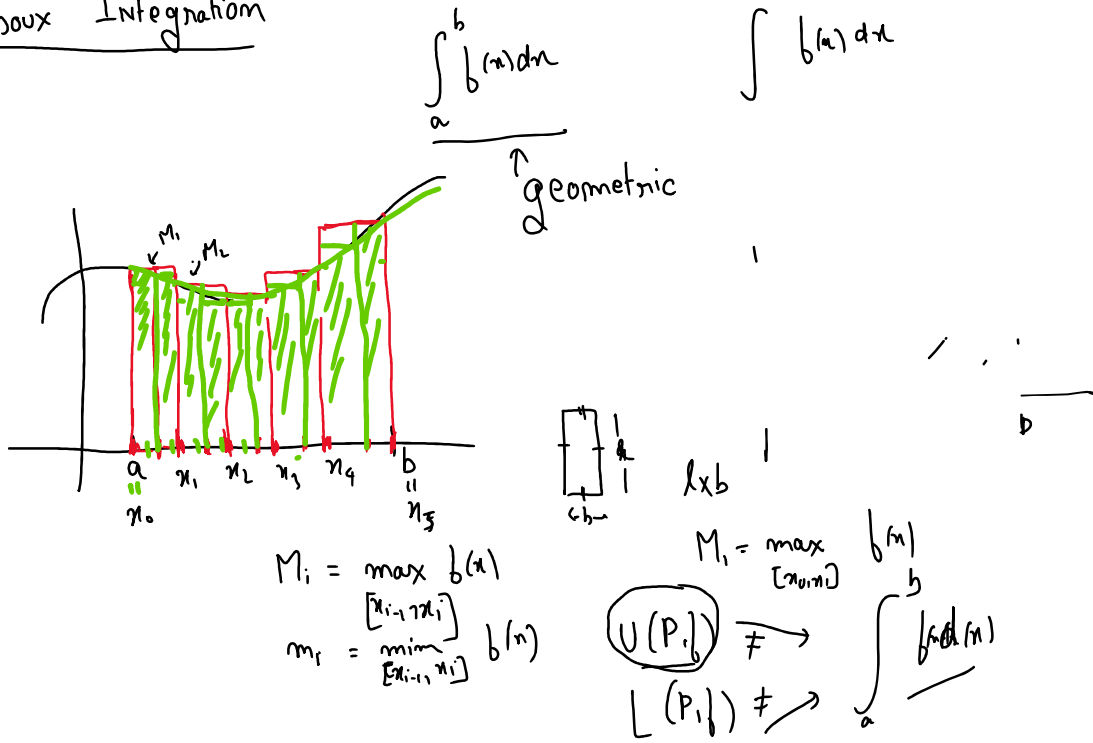 oux Integration
∫_a^b f(x)dx
∫ f(x) dx
↑
geometric
M₁ M₂
a x₁ x₂ x₃ x₄ b
|| ||
x₀ x₅
b
l×b
b
M_i = max f(x)
[x_{i-1}, x_i]
m_i = min f(x)
[x_{i-1}, x_i]
M₁ = max f(x)
[x₀,x₁]
U(P,f) ≠ →
L(P,f) ≠ →
∫_a^b